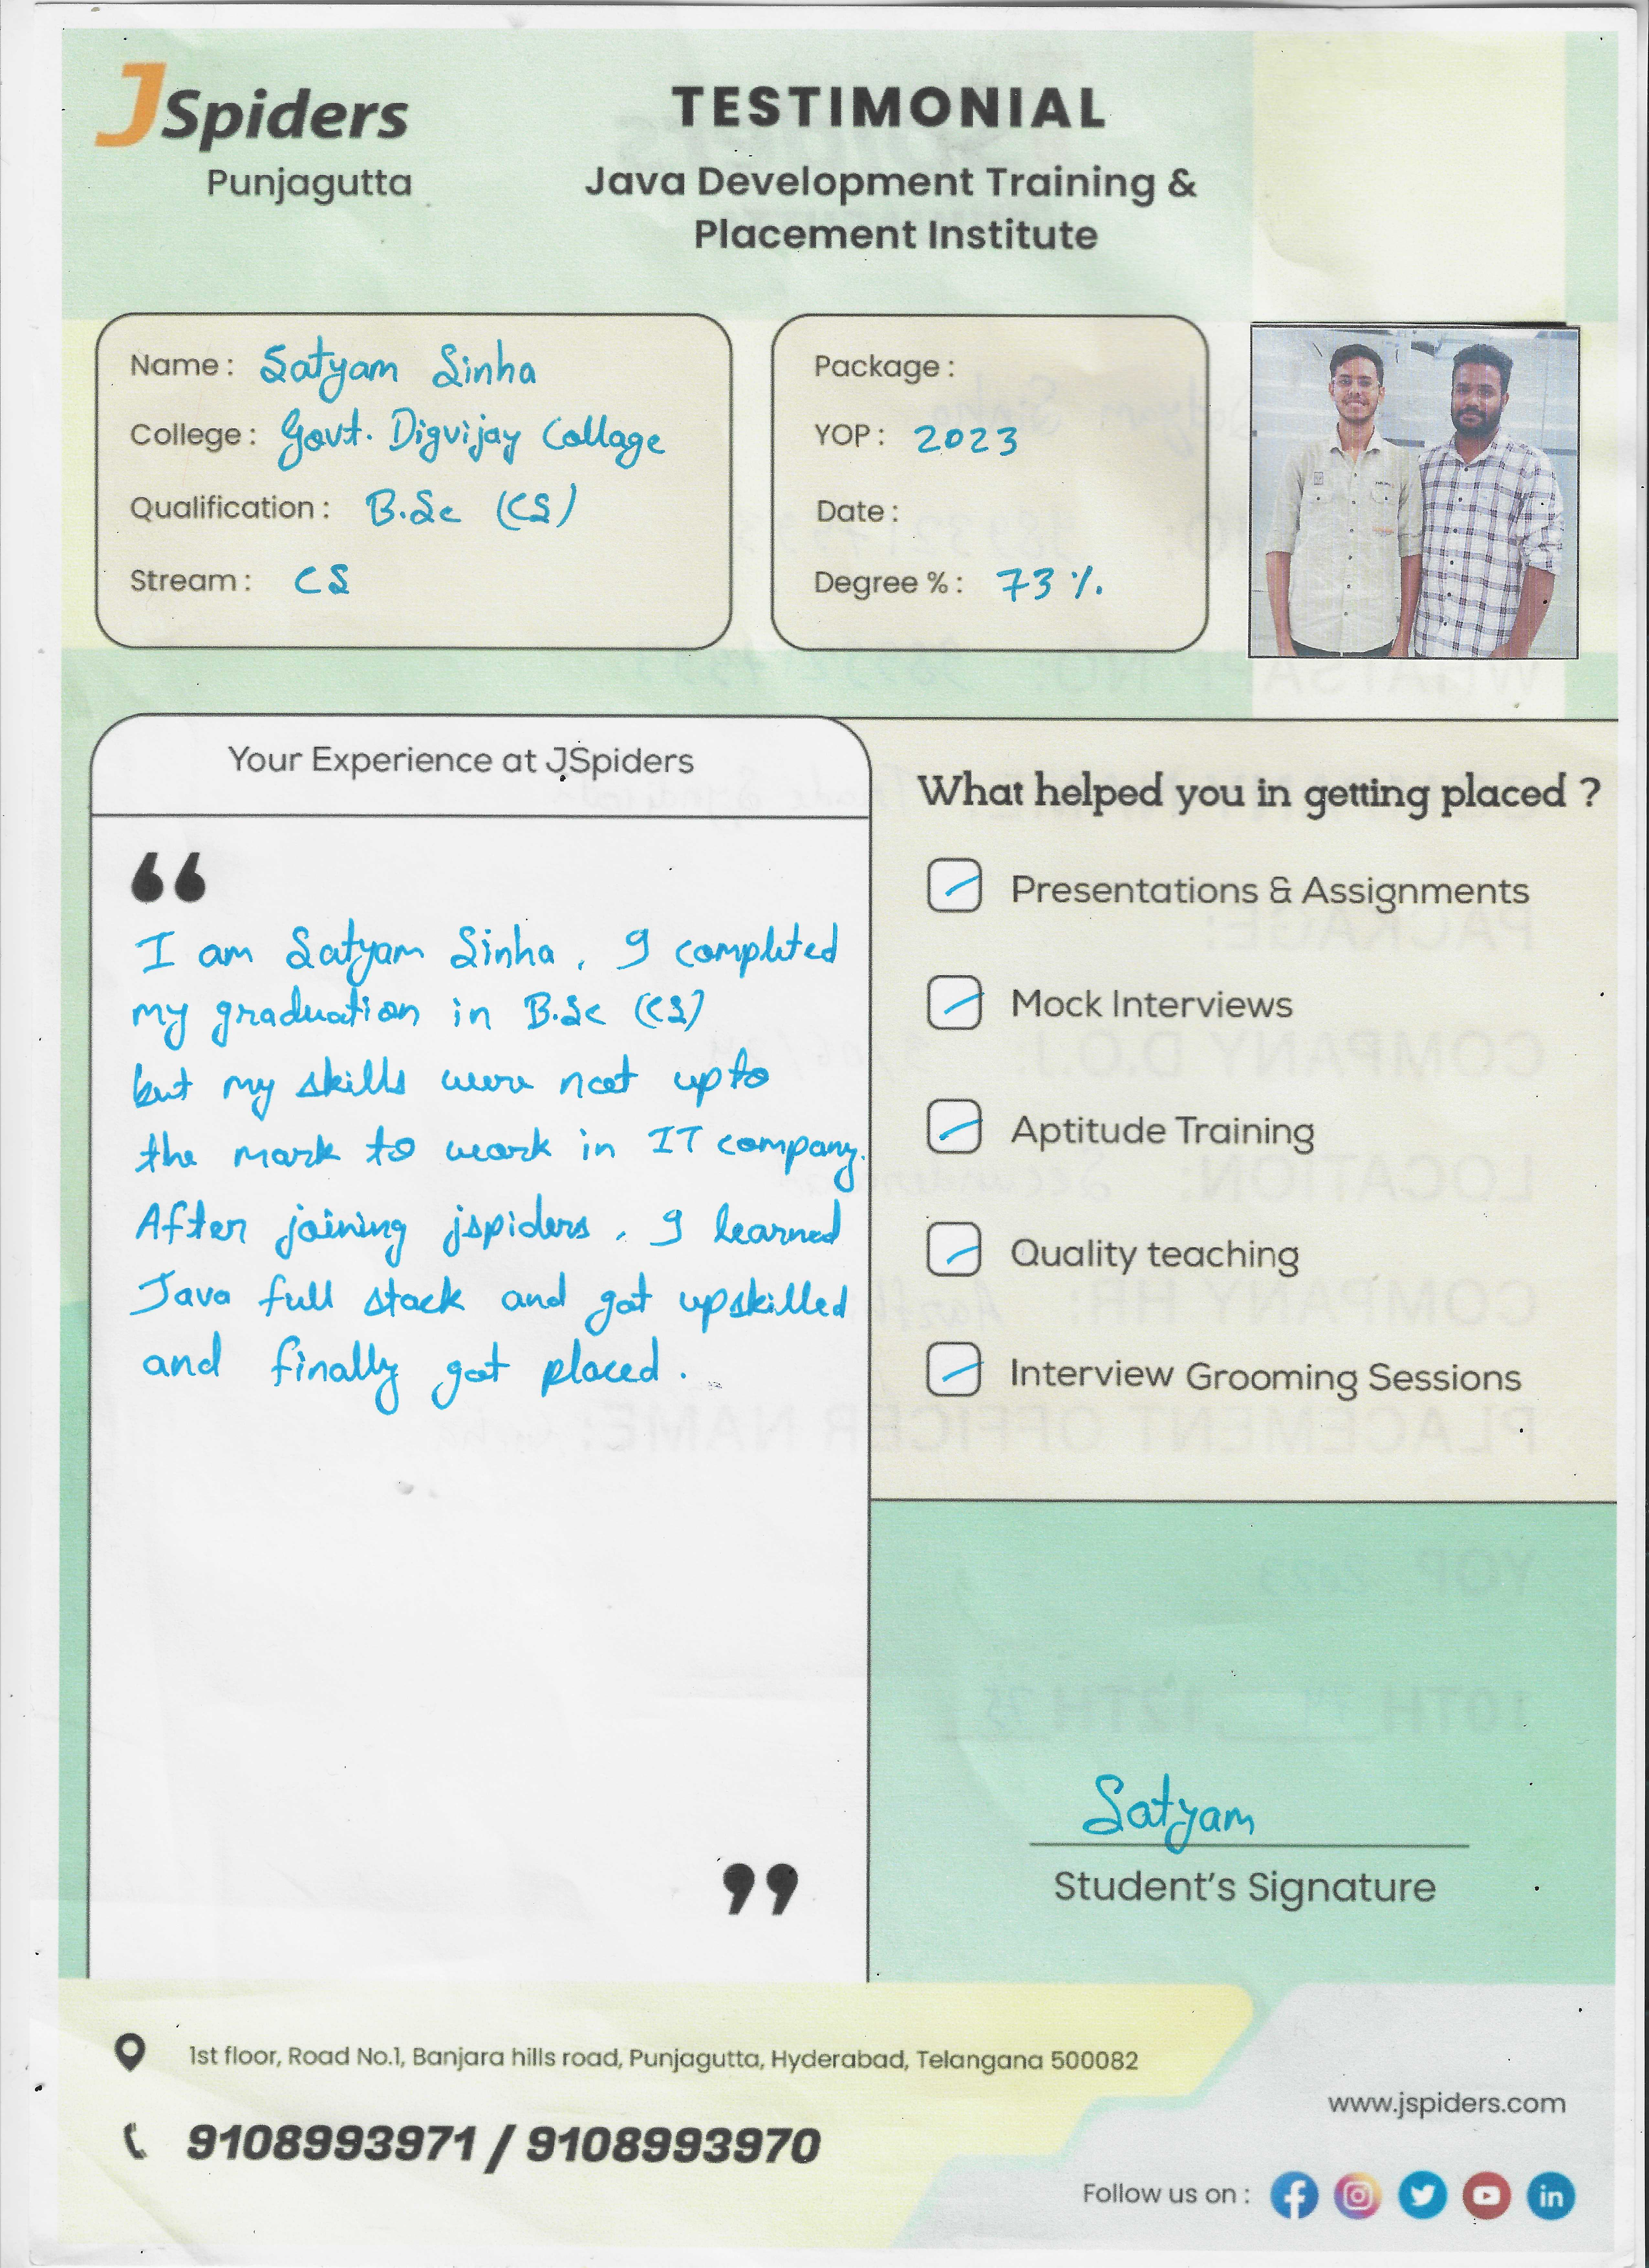 JSpiders
Punjagutta
TESTIMONIAL
Java Development Training &
Placement Institute
Name : Satyam Sinha
College : Govt. Digvijay Collage
Qualification : B.Sc (CS)
Stream : CS
Package :
YOP : 2023
Date :
Degree % : 73 %.
Your Experience at JSpiders
“
I am Satyam Sinha, I completed
my graduation in B.Sc (CS)
but my skills were not upto
the mark to work in IT company.
After joining jspiders, I learned
Java full stack and got upskilled
and finally got placed.
”
What helped you in getting placed ?
Presentations & Assignments
Mock Interviews
Aptitude Training
Quality teaching
Interview Grooming Sessions
Satyam
Student's Signature
1st floor, Road No.1, Banjara hills road, Punjagutta, Hyderabad, Telangana 500082
9108993971 / 9108993970
www.jspiders.com
Follow us on :